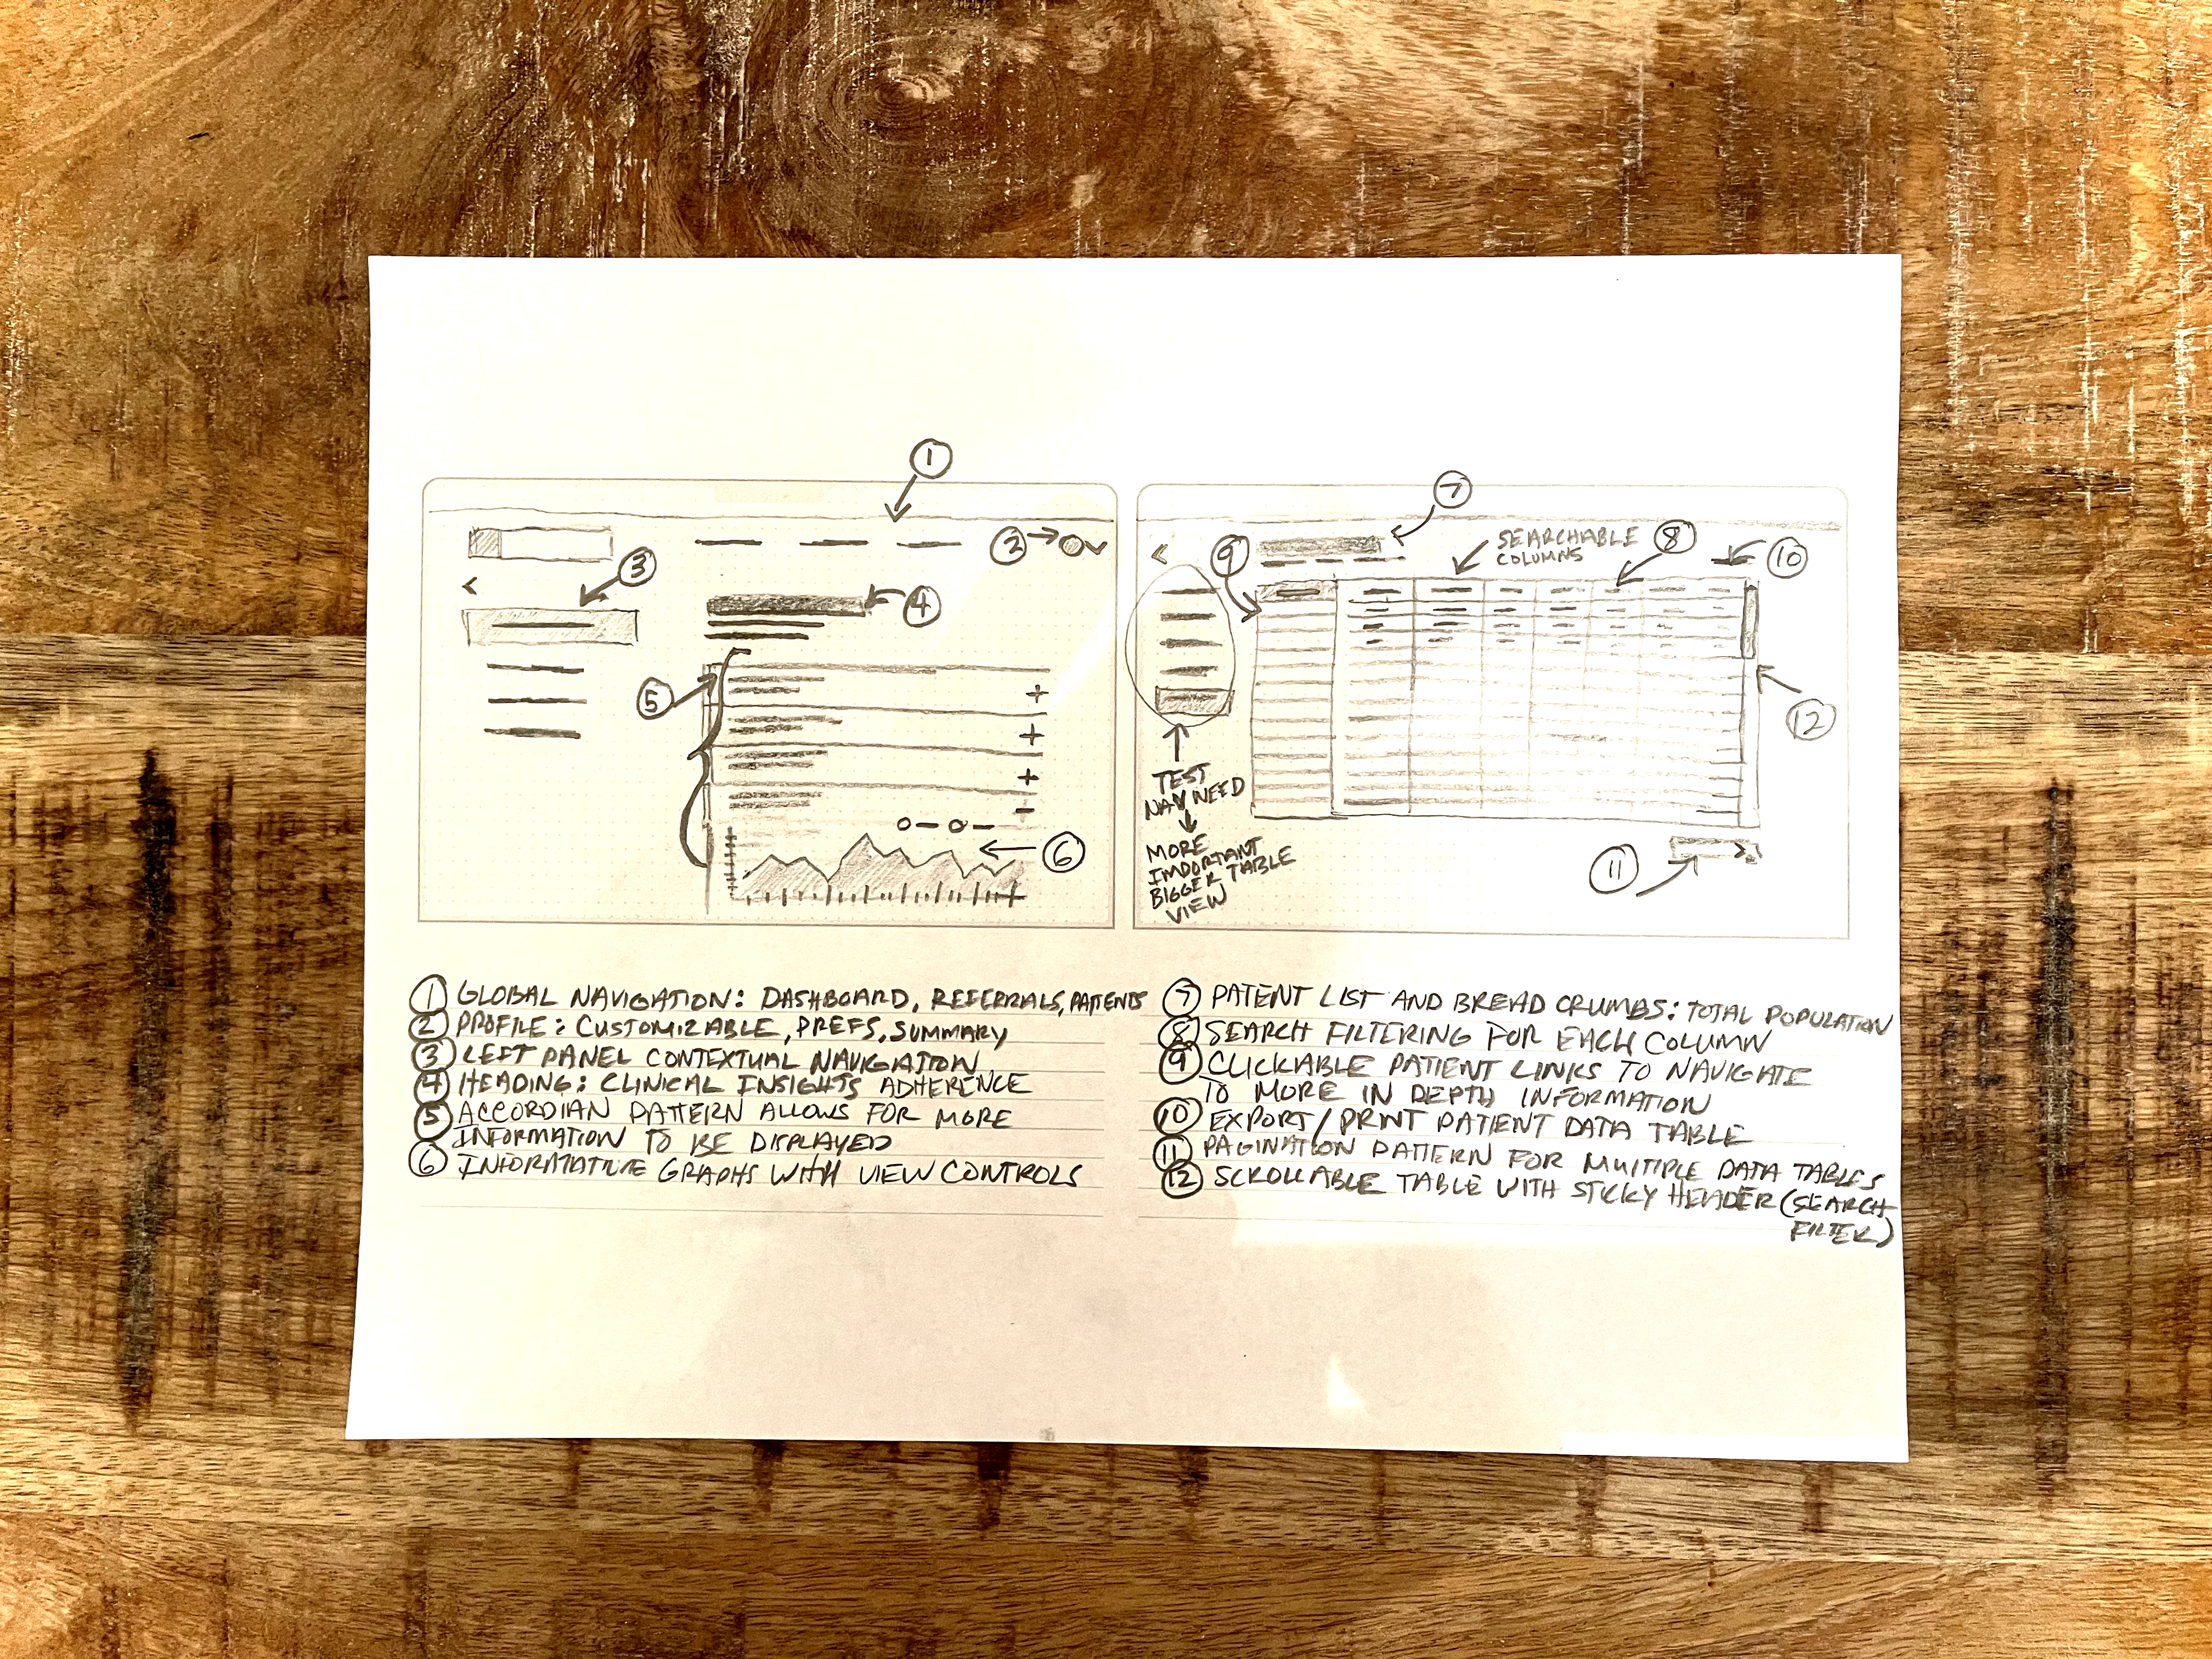 1
2
3
4
5
6
7
SEARCHABLE
COLUMNS
8
9
10
11
12
TEST
NAV NEED
MORE
IMPORTANT
BIGGER TABLE
VIEW
1 GLOBAL NAVIGATION: DASHBOARD, REFERRALS, PATIENTS
2 PROFILE: CUSTOMIZABLE, PREFS, SUMMARY
3 LEFT PANEL CONTEXTUAL NAVIGATION
4 HEADING: CLINICAL INSIGHTS ADHERENCE
5 ACCORDIAN PATTERN ALLOWS FOR MORE
INFORMATION TO BE DISPLAYED
6 INFORMATIVE GRAPHS WITH VIEW CONTROLS
7 PATENT LIST AND BREAD CRUMBS: TOTAL POPULATION
8 SEARCH FILTERING FOR EACH COLUMN
9 CLICKABLE PATIENT LINKS TO NAVIGATE
TO MORE IN DEPTH INFORMATION
10 EXPORT/PRINT PATIENT DATA TABLE
11 PAGINATION PATTERN FOR MULTIPLE DATA TABLES
12 SCROLLABLE TABLE WITH STICKY HEADER (SEARCH
FILTER)